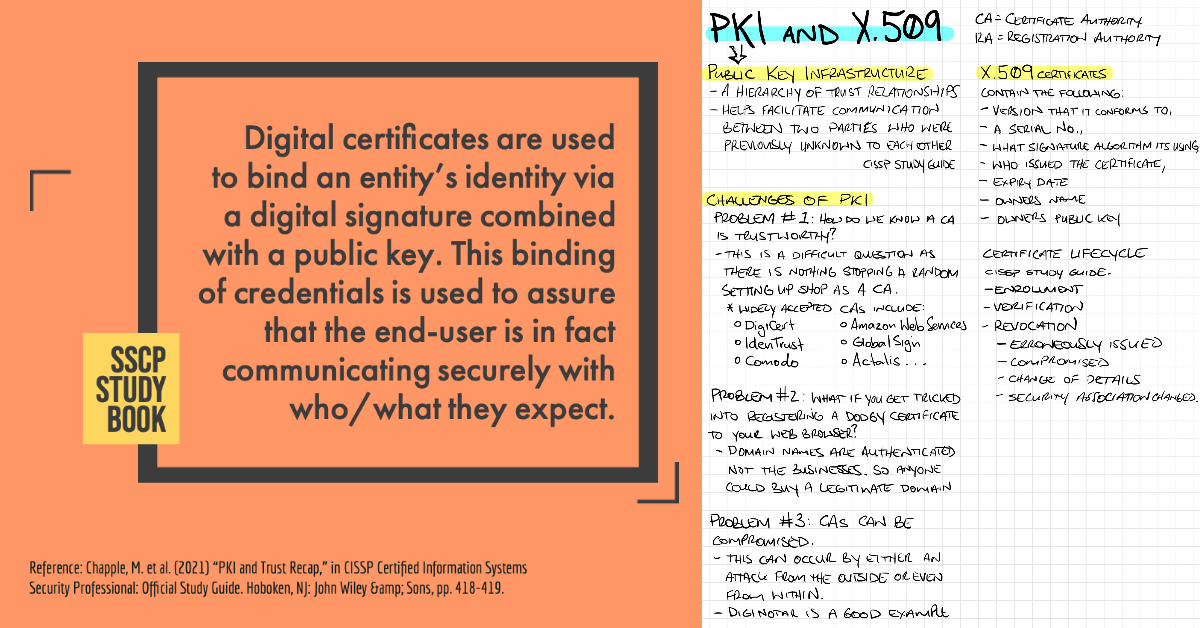 Digital certificates are used
to bind an entity's identity via
a digital signature combined
with a public key. This binding
of credentials is used to assure
that the end-user is in fact
communicating securely with
who/what they expect.
SSCP
STUDY
BOOK
Reference: Chapple, M. et al. (2021) “PKI and Trust Recap,” in CISSP Certified Information Systems
Security Professional: Official Study Guide. Hoboken, NJ: John Wiley &amp; Sons, pp. 418-419.
PKI AND X.509
PUBLIC KEY INFRASTRUCTURE
- A HIERARCHY OF TRUST RELATIONSHIPS
- HELPS FACILITATE COMMUNICATION
BETWEEN TWO PARTIES WHO WERE
PREVIOUSLY UNKNOWN TO EACH OTHER
CISSP STUDY GUIDE
CHALLENGES OF PKI
PROBLEM #1: HOW DO WE KNOW A CA
IS TRUSTWORTHY?
- THIS IS A DIFFICULT QUESTION AS
THERE IS NOTHING STOPPING A RANDOM
SETTING UP SHOP AS A CA.
* WIDELY ACCEPTED CAs INCLUDE:
o DigiCert o Amazon Web Services
o IdenTrust o GlobalSign
o Comodo o Actalis...
PROBLEM #2: WHAT IF YOU GET TRICKED
INTO REGISTERING A DODGY CERTIFICATE
TO YOUR WEB BROWSER?
- DOMAIN NAMES ARE AUTHENTICATED
NOT THE BUSINESSES. SO ANYONE
COULD BUY A LEGITIMATE DOMAIN
PROBLEM #3: CAs CAN BE
COMPROMISED.
- THIS CAN OCCUR BY EITHER AN
ATTACK FROM THE OUTSIDE OR EVEN
FROM WITHIN.
- DIGINOTAR IS A GOOD EXAMPLE
CA = CERTIFICATE AUTHORITY
RA = REGISTRATION AUTHORITY
X.509 CERTIFICATES
CONTAIN THE FOLLOWING:
- VERSION THAT IT CONFORMS TO,
- A SERIAL NO.,
- WHAT SIGNATURE ALGORITHM ITS USING
- WHO ISSUED THE CERTIFICATE,
- EXPIRY DATE
- OWNERS NAME
- OWNERS PUBLIC KEY
CERTIFICATE LIFECYCLE
CISSP STUDY GUIDE.
- ENROLLMENT
- VERIFICATION
- REVOCATION
- ERRONEOUSLY ISSUED
- COMPROMISED
- CHANGE OF DETAILS
- SECURITY ASSOCIATION CHANGED.